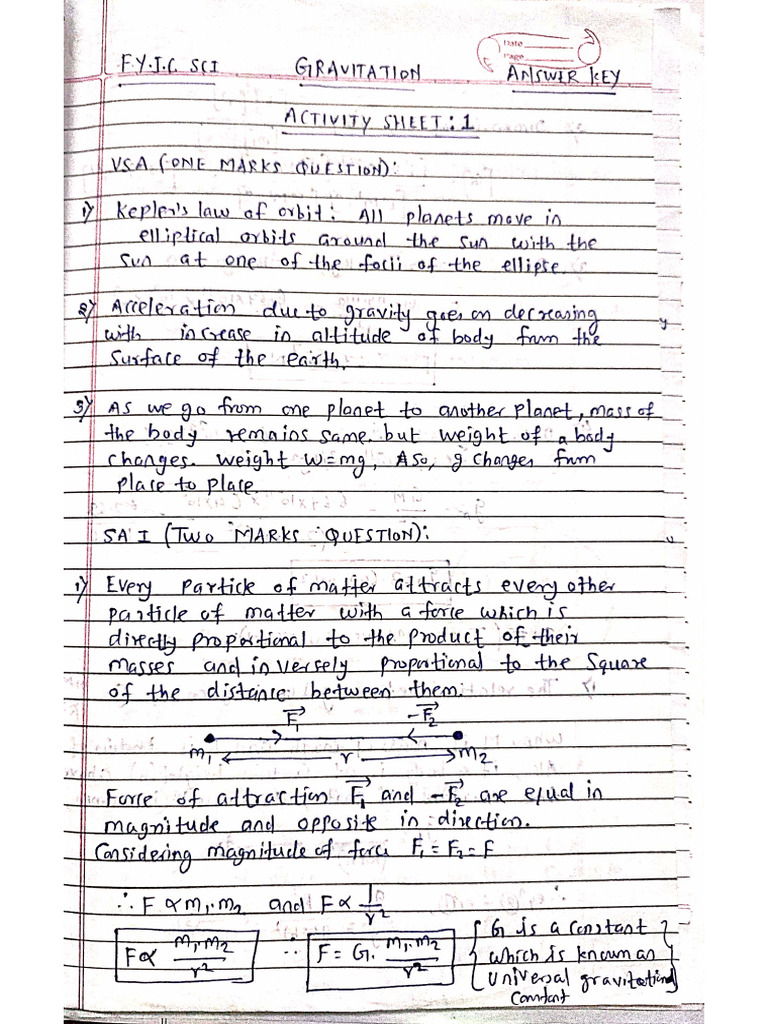 Date
Page
F.Y.J.C. SCI GRAVITATION ANSWER KEY
ACTIVITY SHEET : 1
VSA (ONE MARKS QUESTION):
1) Kepler's law of orbit: All planets move in
elliptical orbits around the sun with the
sun at one of the focii of the ellipse.
2) Acceleration due to gravity goes on decreasing
with increase in altitude of body from the
surface of the earth.
3) As we go from one planet to another planet, mass of
the body remains same but weight of a body
changes. weight w=mg, Aso, g changes from
place to place
SA I (TWO MARKS QUESTION):
1) Every particle of matter attracts every other
particle of matter with a force which is
directly proportional to the product of their
masses and inversely proportional to the square
of the distance between them.
F₁ -F₂
m₁ r m₂
Force of attraction F₁ and -F₂ are equal in
magnitude and opposite in direction.
Considering magnitude of force F₁ = F₂ = F
∴ F ∝ m₁.m₂ and F ∝ 1/r²
F ∝ m₁.m₂/r² ∴ F = G. m₁.m₂/r² { G is a constant
which is known as
universal gravitational
constant }